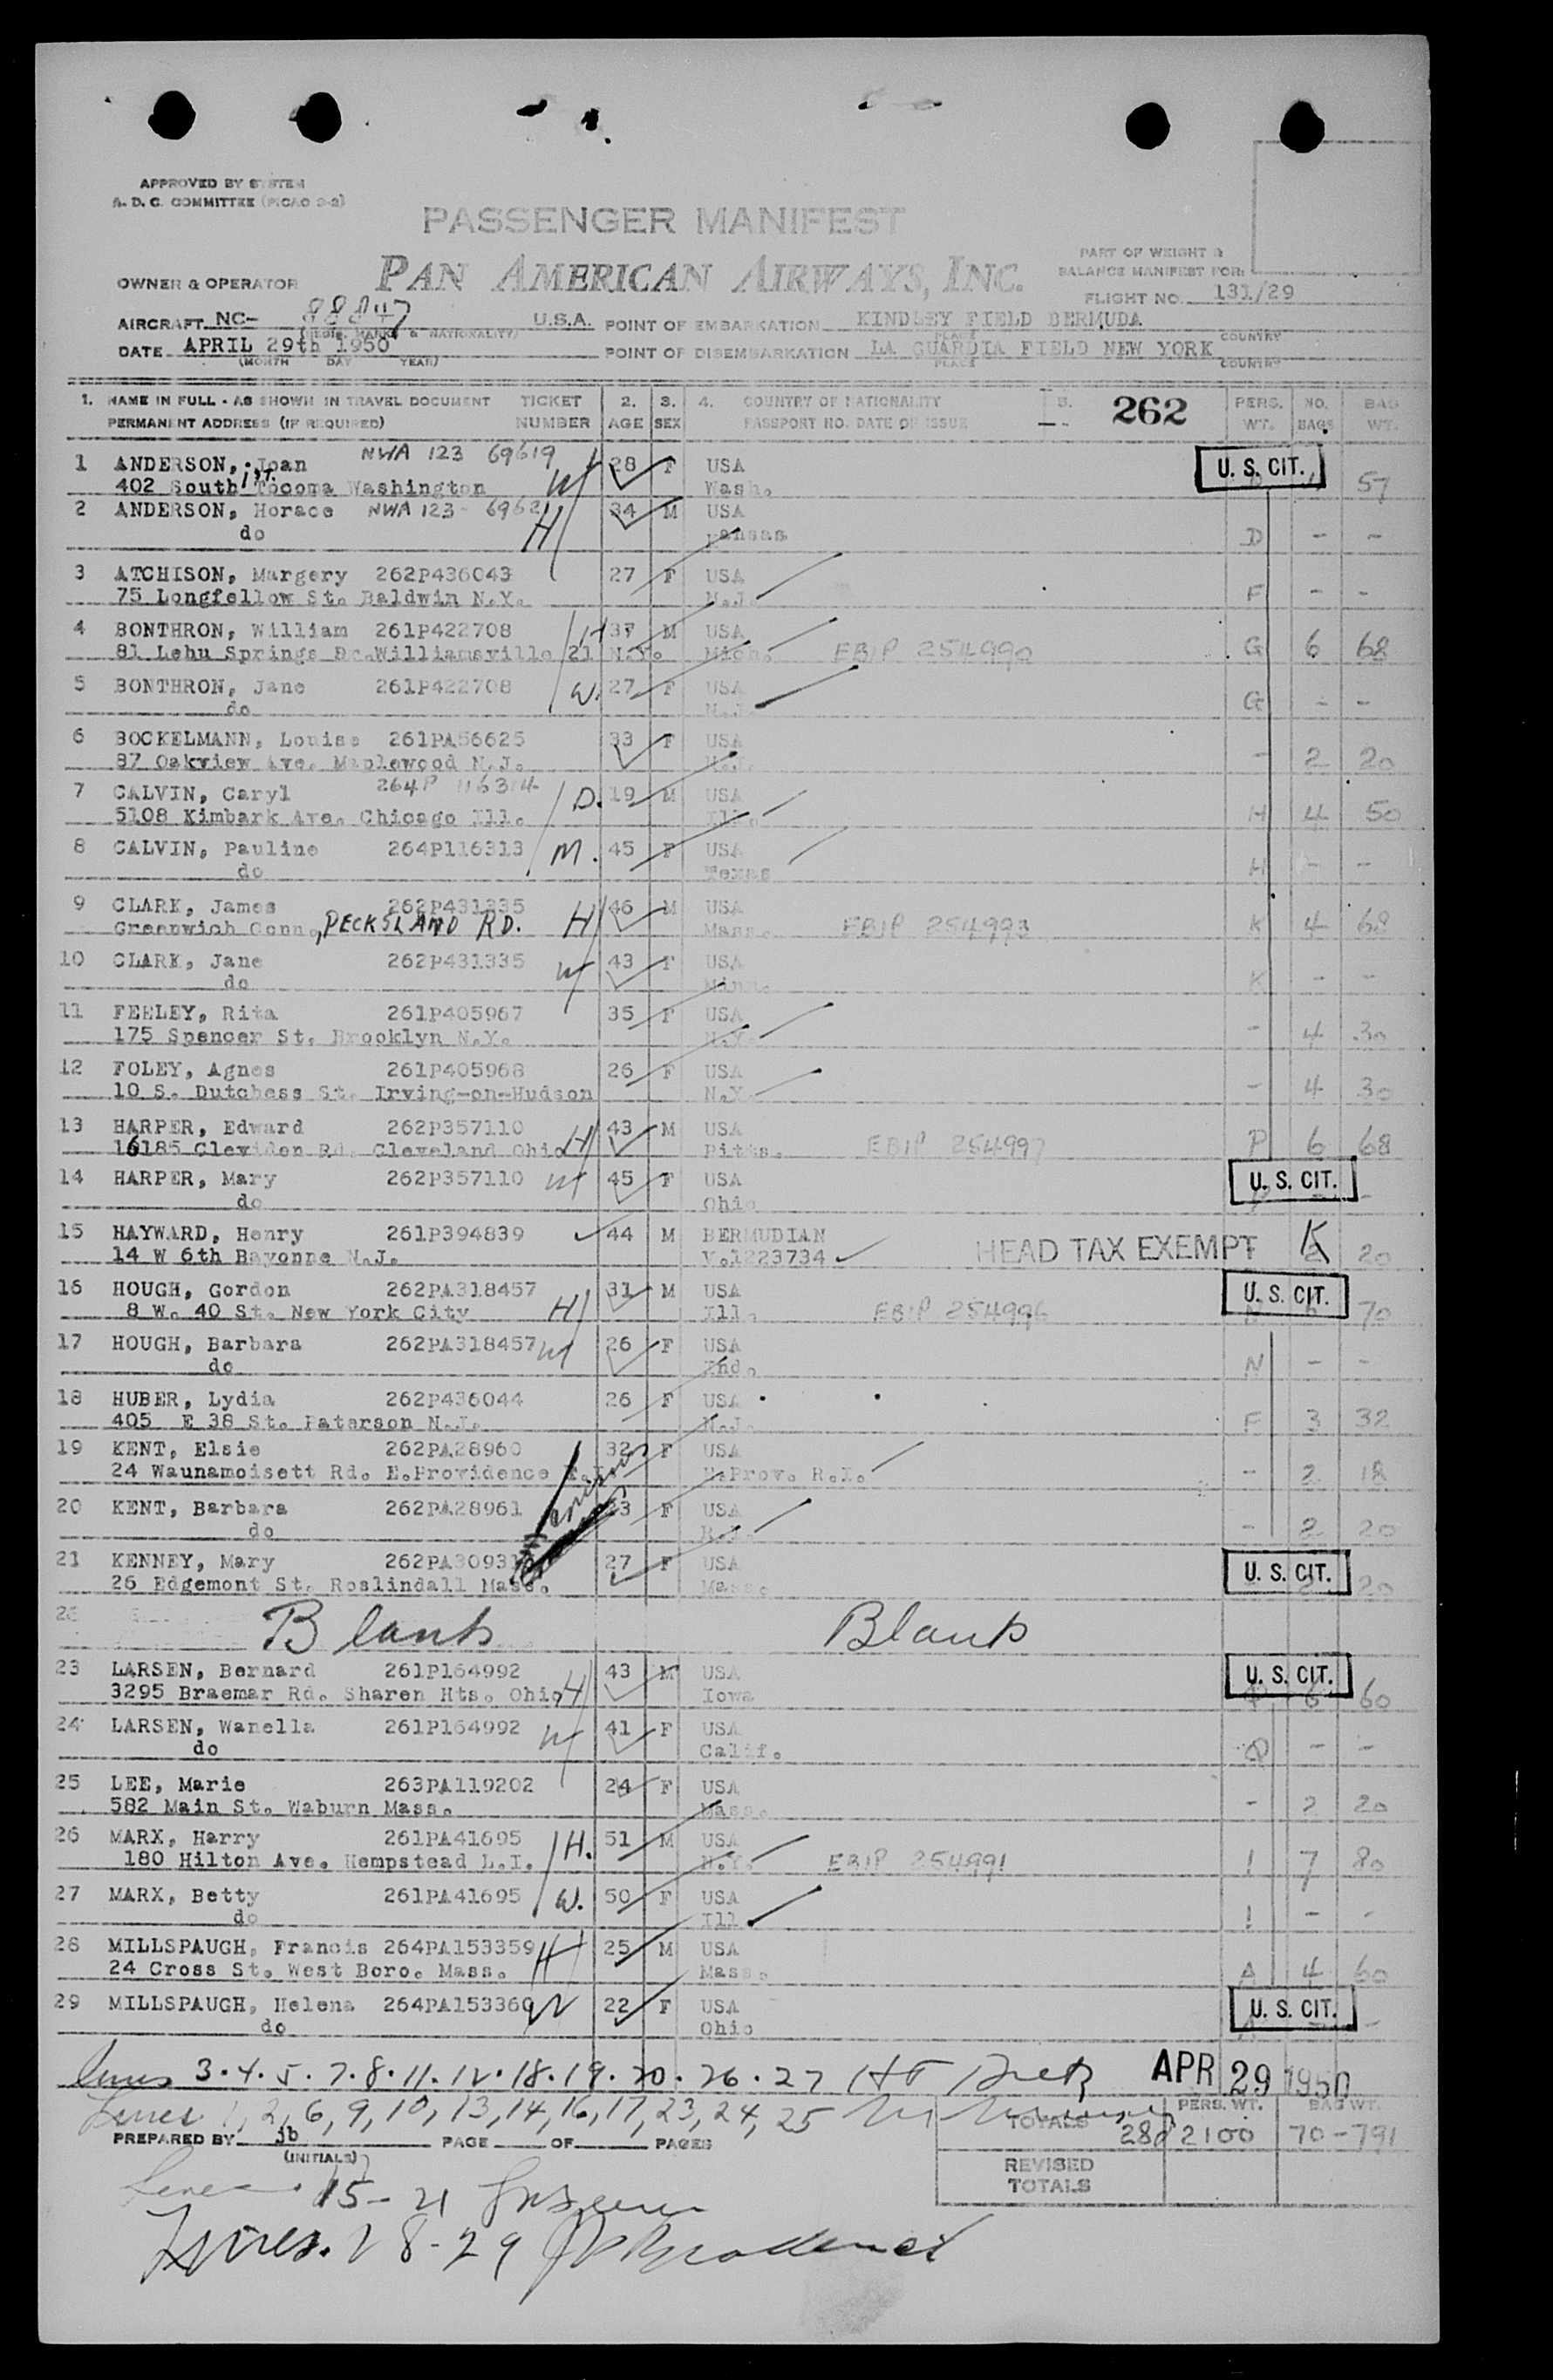 APPROVED BY SYSTEM
A. D. C. COMMITTEE (PICAO 2-2)
PASSENGER MANIFEST
OWNER & OPERATOR PAN AMERICAN AIRWAYS, INC.
PART OF WEIGHT &
BALANCE MANIFEST FOR:
FLIGHT NO. 131/29
AIRCRAFT NC- 88847 U.S.A. POINT OF EMBARKATION KINDLEY FIELD BERMUDA
(REGIS. MARKS & NATIONALITY) PLACE COUNTRY
DATE APRIL 29th 1950 POINT OF DISEMBARKATION LA GUARDIA FIELD NEW YORK
(MONTH DAY YEAR) PLACE COUNTRY
1. NAME IN FULL - AS SHOWN IN TRAVEL DOCUMENT TICKET 2. 3. 4. COUNTRY OF NATIONALITY 5. 262 PERS. NO. BAG
PERMANENT ADDRESS (IF REQUIRED) NUMBER AGE SEX PASSPORT NO. DATE OF ISSUE WT. BAGS WT.
1 ANDERSON, Joan NWA 123 69619 28 F USA U. S. CIT.
402 South Tocoma Washington W Wash. 57
2 ANDERSON, Horace NWA 123- 6962 34 M USA
do H Kansas D - -
3 ATCHISON, Margery 262P436043 27 F USA
75 Longfellow St. Baldwin N.Y. N.J. F - -
4 BONTHRON, William 261P422708 H 37 M USA
81 Lehu Springs Dr.Williamsville 21 N.Y. Mich. EBIP 254990 G 6 68
5 BONTHRON, Jane 261P422708 W. 27 F USA
do N.J. G - -
6 BOCKELMANN, Louise 261PA56625 33 F USA
87 Oakview Ave. Maplewood N.J. N.J. - 2 20
7 CALVIN, Caryl 264P 116314 D. 19 M USA
5108 Kimbark Ave. Chicago Ill. Ill. H 4 50
8 CALVIN, Pauline 264P116313 M. 45 F USA
do Texas H - -
9 CLARK, James 262P431335 46 M USA
Greenwich Conn., PECKSLAND RD. H Mass. EBIP 254993 K 4 68
10 CLARK, Jane 262P431335 W 43 F USA
do Minn. K - -
11 FEELEY, Rita 261P405967 35 F USA
175 Spencer St. Brooklyn N.Y. N.Y. - 4 30
12 FOLEY, Agnes 261P405968 26 F USA
10 S. Dutchess St. Irving-on-Hudson N.Y. - 4 30
13 HARPER, Edward 262P357110 43 M USA
16185 Cleviden Rd. Cleveland Ohio H Pitts. EBIP 254997 P 6 68
14 HARPER, Mary 262P357110 W 45 F USA U. S. CIT.
do Ohio -
15 HAYWARD, Henry 261P394839 44 M BERMUDIAN
14 W 6th Bayonne N.J. V.1223734 HEAD TAX EXEMPT K 2 20
16 HOUGH, Gordon 262PA318457 31 M USA U. S. CIT.
8 W. 40 St. New York City H Ill. EBIP 254996 N 6 70
17 HOUGH, Barbara 262PA318457 W 26 F USA
do Ind. N - -
18 HUBER, Lydia 262P436044 26 F USA
405 E 38 St. Paterson N.J. N.J. F 3 32
19 KENT, Elsie 262PA28960 32 F USA
24 Waunamoisett Rd. E.Providence E.Prov. R.I. - 2 18
20 KENT, Barbara 262PA28961 23 F USA
do R.I. - 2 20
21 KENNEY, Mary 262PA30931 27 F USA U. S. CIT.
26 Edgemont St. Roslindall Mass. Mass. 20
Blank Blank
23 LARSEN, Bernard 261P164992 43 M USA U. S. CIT.
3295 Braemar Rd. Sharen Hts. Ohio H Iowa Q 6 60
24 LARSEN, Wanella 261P164992 W 41 F USA
do Calif. Q - -
25 LEE, Marie 263PA119202 24 F USA
582 Main St. Waburn Mass. Mass. - 2 20
26 MARX, Harry 261PA41695 H. 51 M USA
180 Hilton Ave. Hempstead L.I. N.Y. EBIP 254991 I 7 80
27 MARX, Betty 261PA41695 W. 50 F USA
do Ill I - -
28 MILLSPAUGH, Francis 264PA153359 H 25 M USA
24 Cross St. West Boro. Mass. Mass. A 4 60
29 MILLSPAUGH, Helena 264PA153360 W 22 F USA U. S. CIT.
do Ohio -
lines 3.4.5.7.8.11.12.18.19.20.26.27 APR 29 1950
Lines 1, 2, 6, 9, 10, 13, 14, 16, 17, 23, 24, 25 PERS. WT. BAG WT.
PREPARED BY jb PAGE OF PAGES TOTALS 28 2100 70-791
(INITIALS)
REVISED
TOTALS
Lines 15-21
Lines. 28-29